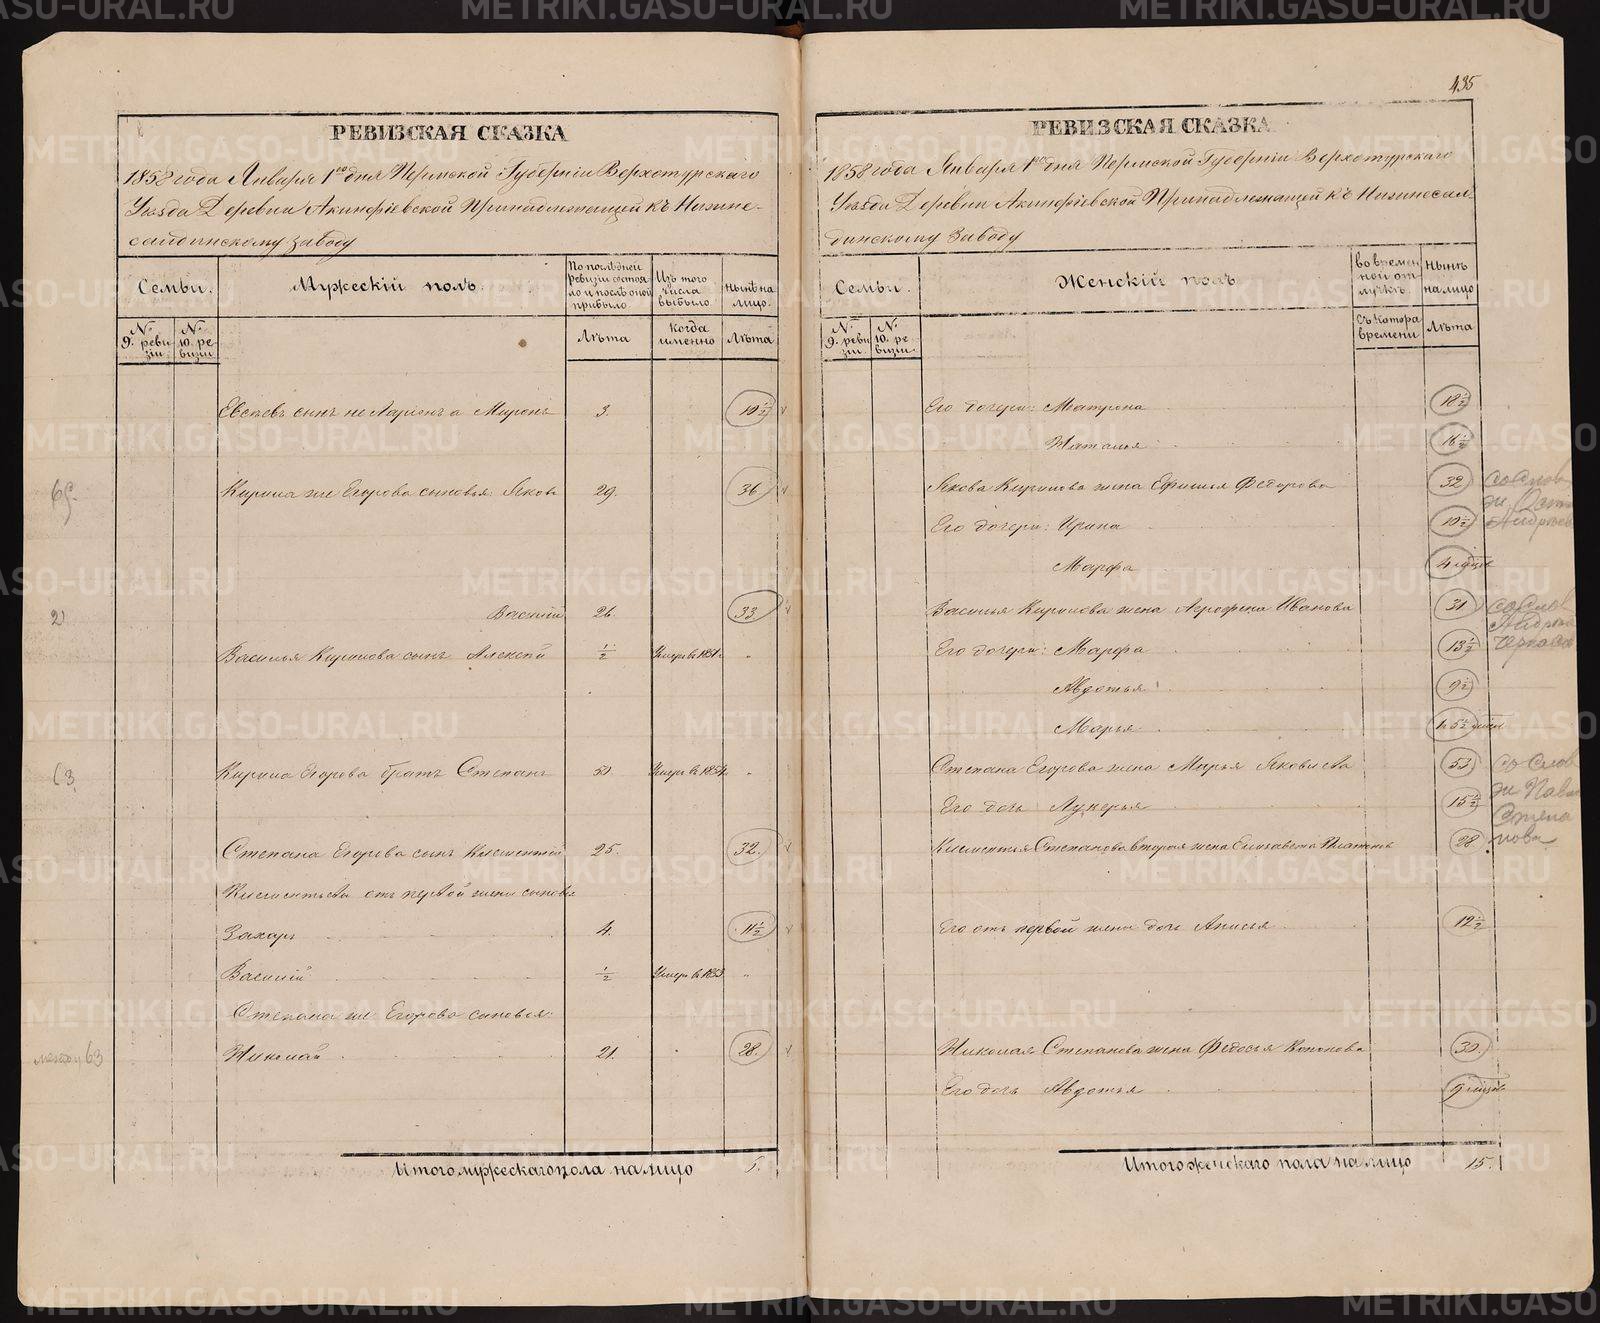 435
РЕВИЗСКАЯ СКАЗКА
1858 года Января 1го дня Пермской Губерніи Верхотурскаго
Уезда Деревни Акинфіевской Принадлежащей къ Нижне-
салдинскому заводу
Семьи.
Мужескій полъ.
По послѣдней ревизіи состояло и послѣ оной прибыло
Изъ того числа выбыло
Нынѣ на лицо.
№ 9. ревизіи
№ 10. ревизіи
Лѣта
когда именно
Лѣта
Евсѣевъ сынъ не Ларіонъ а Миронъ 3. 10½
Кирила же Егорова сыновья Яковъ 29. 36
Василій 26. 33
Василья Кирилова сынъ Алексѣй ½ Умеръ въ 1851г.
63 Кирила Егорова братъ Степанъ Умеръ въ 1854.
Степана Егорова сынъ Клементій 25. 32.
Клементьева отъ первой жены сыновья
Захаръ 4. 11½
Василій ½ Умеръ въ 1853
Степана же Егорова сыновья:
63 Николай 21. 28.
Итого мужескаго пола на лицо 6.
РЕВИЗСКАЯ СКАЗКА
1858 года Января 1го дня Пермской Губерніи Верхотурскаго
Уезда Деревни Акинфіевской Принадлежащей къ Нижнесал-
динскому Заводу
Семьи.
Женскій полъ
во временной отлучкѣ.
Нынѣ на лицо
№ 9. ревизіи
№ 10. ревизіи
съ котора времени
Лѣта
Его дочери: Матрона 18½
Наталья 16½
Якова Кирилова жена Ефимья Федорова 32
Его дочери: Ирина 10½
Марфа 4 мѣсяц
Василья Кирилова жена Агрофена Иванова 31
Его дочери: Марфа 13½
Авдотья 9½
Марья
Степана Егорова жена Марья Яковлева 53
Его дочь Лукерья 15½
Клементья Степанова вторая жена Елизавета 28
Его отъ первой жены дочь Анисья 12½
Николая Степанова жена Федосья Кононова 30.
Его дочь Авдотья 9 мѣсяц
Итого женскаго пола на лицо 15.
METRIKI.GASO-URAL.RU